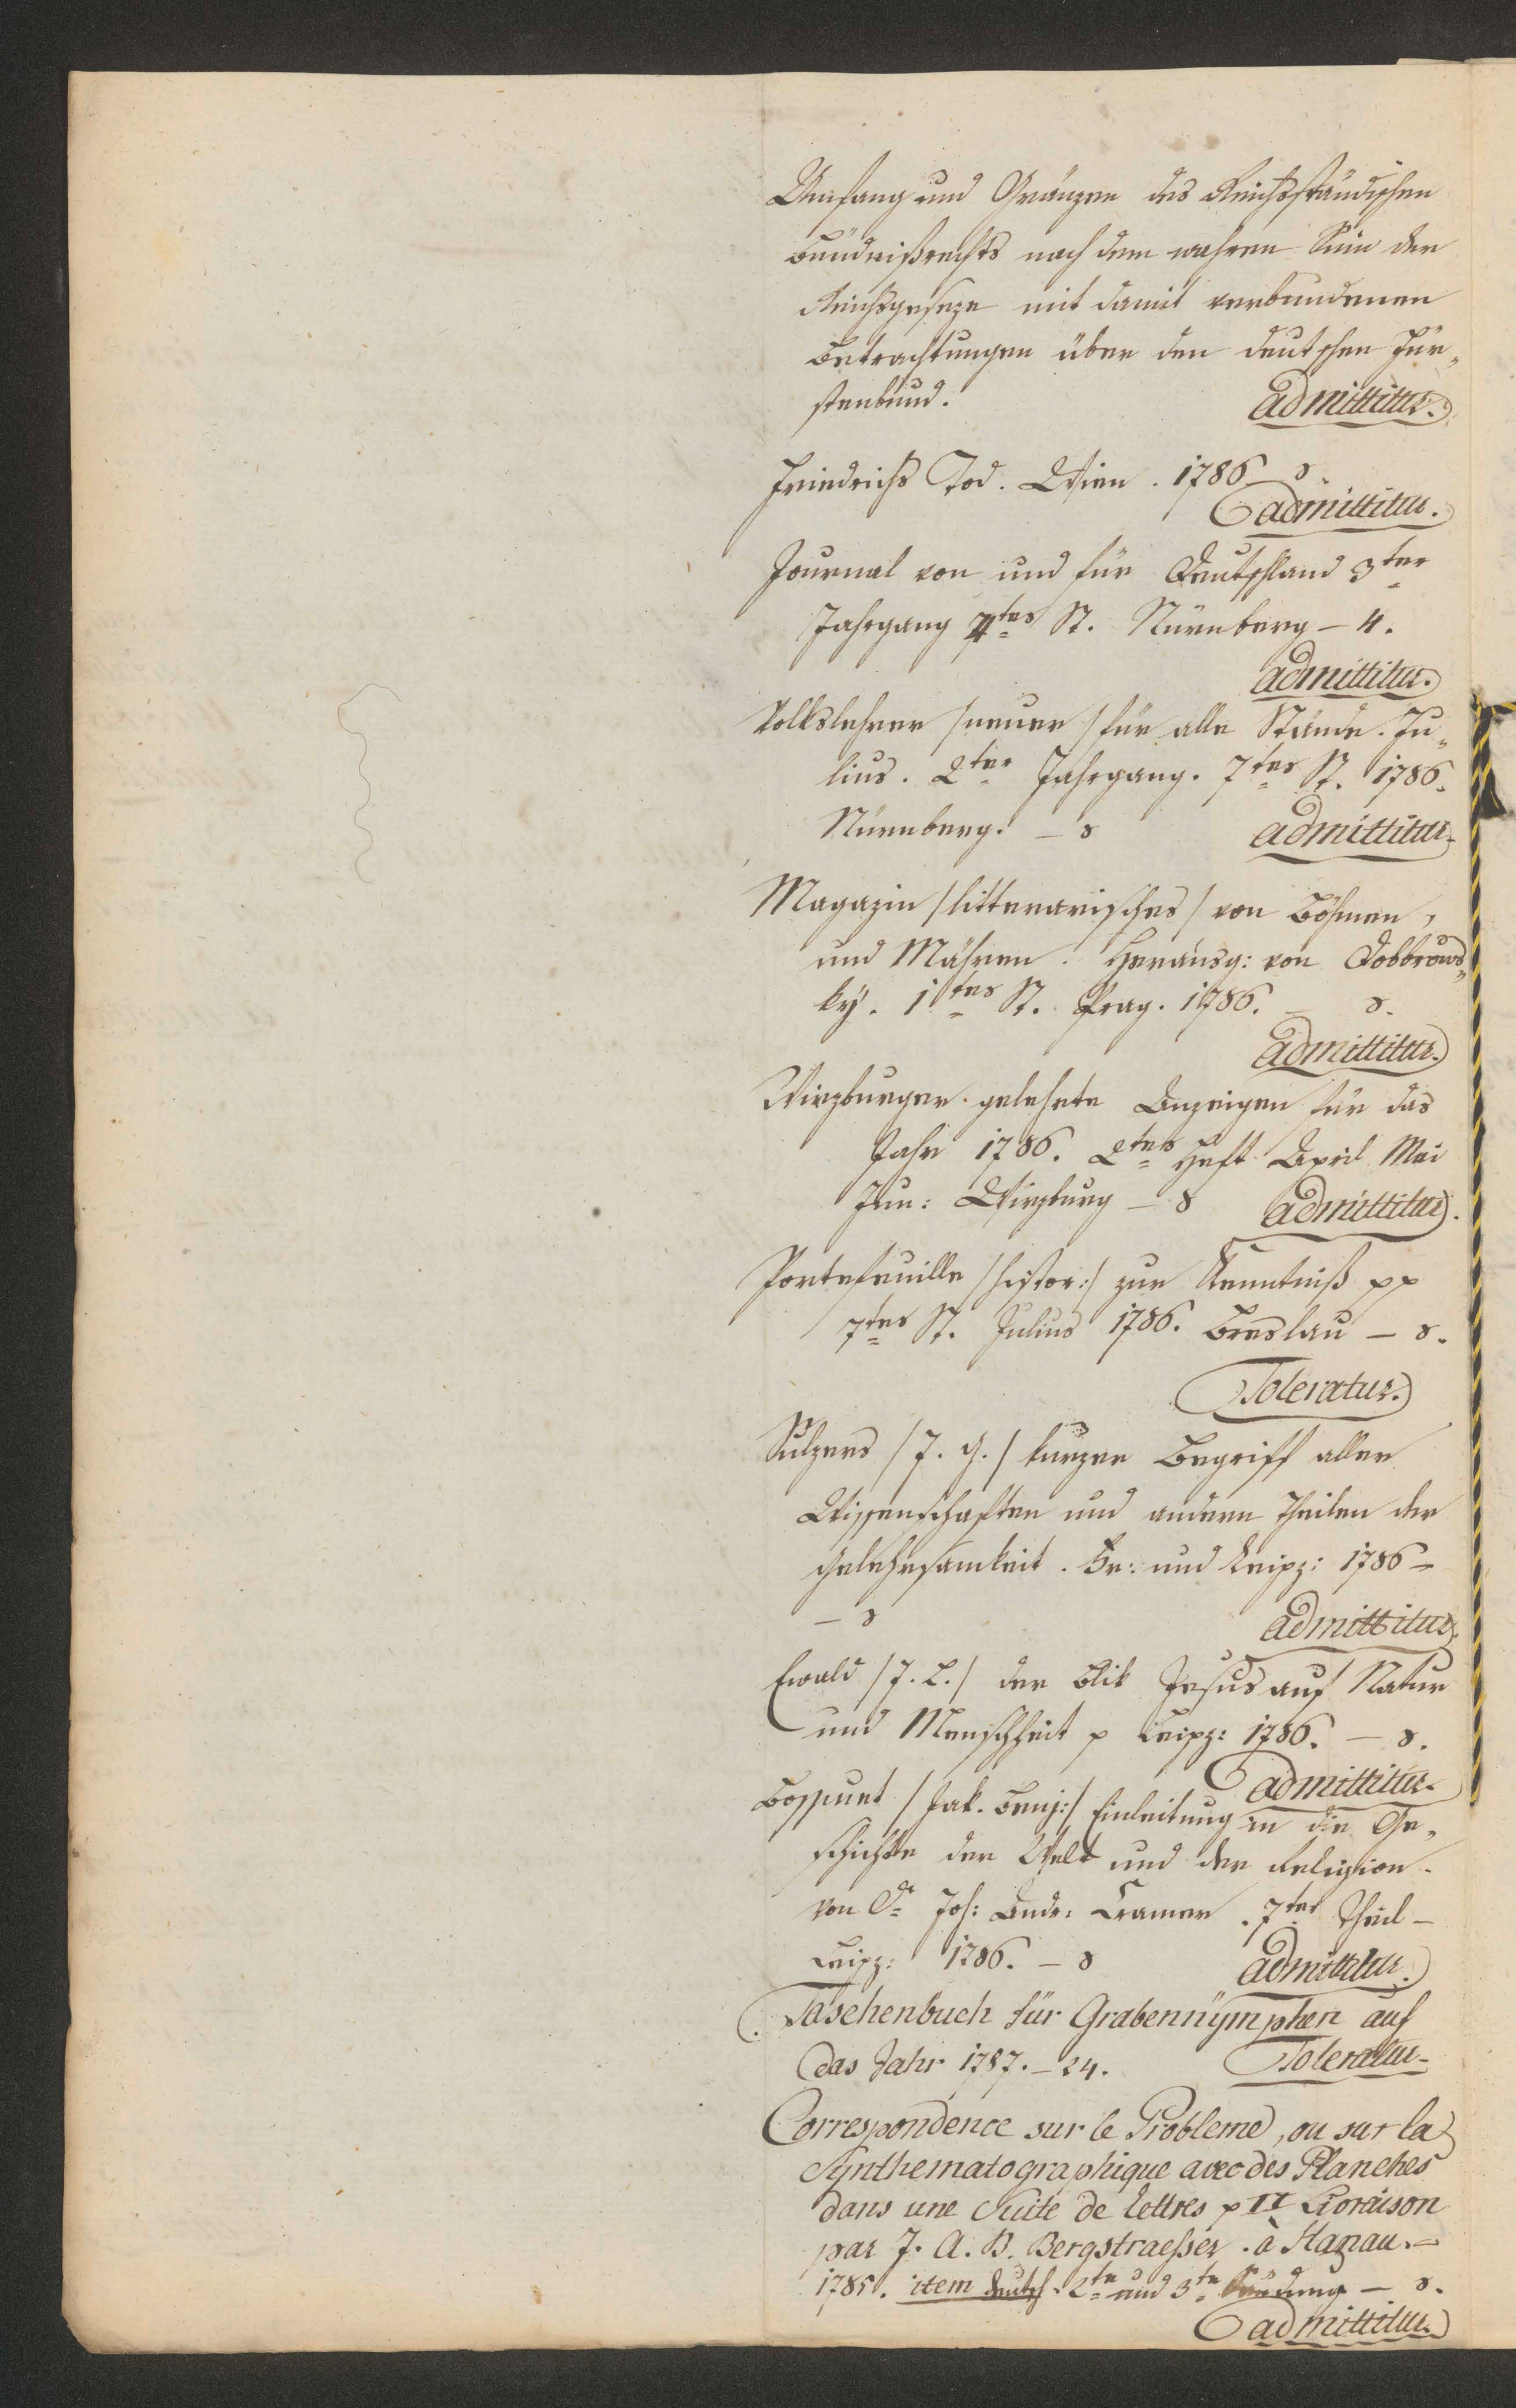 Umfang und Gränzen des Reichsständischen
Bündnißrechts nach dem wahren Sinn der
Reichsgeseze mit damit verbundenen
Betrachtungen über den deutschen Für„
stenbund. admittitur.
Friedrichs Tod. Wien. 1786 8.
admittitur.
Journal von und für Deutschland 3ter
Jahrgang 4tes St. Nürnberg – 4.
admittitur.
Volkslehrer /neuer/ für alle Stände. Ju„
lius. 2ter Jahrgang. 7tes St. 1786.
Nürnberg. – 8 admittitur
Magazin /litterarisches/ von Böhmen,
und Mähren. Herausg: von Dobbrows„
ky. 1tes St. Prag. 1786. – 8.
admittitur.
Wirzburger gelehrte Anzeigen für das
Jahr 1786. 2tes Heft April Mai
Jun: Wirzburg – 8 admittitur.
Portefeuille /histor:/ zur Kenntniß pp
7tes St. Julius 1786. Breslau – 8.
Toleratur.
Sulzers /J. G./ kurzer Begriff aller
Wissenschaften und andern Theilen der
Gelehrsamkeit. Fr: und Leipz: 1786 –
– 8 admittitur.
Ewald /J. L./ der Blik Jesus auf Natur
und Menschheit p Leipz: 1786. – 8.
admittitur.
Bossuet /Jak. Benj:/ Einleitung in die Ge„
schichte der Welt und der Religion.
von Dr Joh: Andr: Cramer. 7ter Theil –
Leipz: 1786. – 8 admittitur.
Taschenbuch für Grabennÿmphen auf
das Jahr 1787. – 24. Toleratur.
Correspondence sur le Probleme, ou sur la
Synthematographique avec des Planches
dans une Suite de lettres p II Livraison
par J. A. B. Bergstraeßer. à Hanau. –
1785. item deutsch. 2te und 3te Sendung – 8.
admittitur.